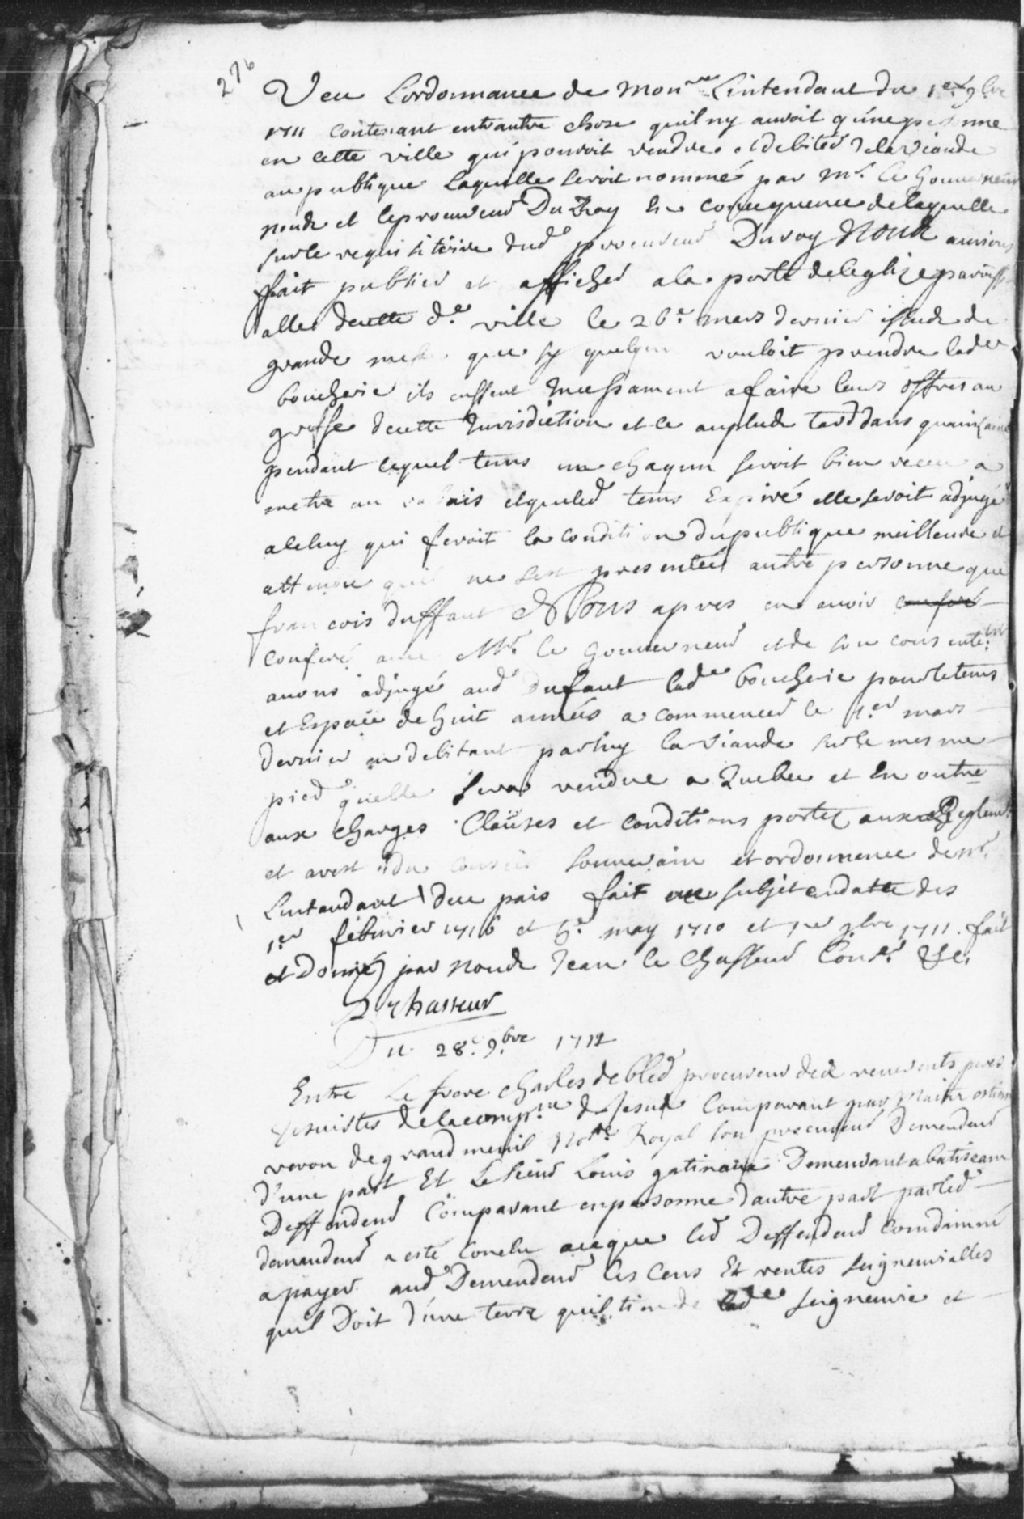 276
Veu Lordonnance de Monr Lintendant du 1er 9bre
1711 contenant entrautre chose quil ny auroit qu'une personne
en cette ville qui pouroit vendre et debiter de la viande
au publique laquelle seroit nommée par Mr. le Gouverneur
nous et le procureur Du Roy En consequence de laquelle
sur le requisitoire dud procureur Du roy Nous aurions
ffait publier et afficher a la porte de leglize paroissi
alle de cette de ville le 26e mars dernier issue de
grande messe que sy quelqun vouloit prendre lade
boucherie ils eussent Incessament a faire leurs offres au
greffe de cette Jurisdiction et ce au plus tard dans quainzaine
pendant lequel tems un chaqun seroit bien receu a
metre au rabais et que led tems Expiré elle seroit adjugé
a celuy qui feroit la condition du publique meilleure et
attendu quil ne sest presentée autre personne que
francois duffaut Nous apres en avoir confere
conferé avec Mr. le Gouverneur et de son consentmt
avons adjugé aud dufaut lade boucherie pour le tems
et Espace de huit années a commencer le 1er mars
dernier en debitant par luy la viande sur le mesme
pied quelle sera vendue a Quebec et En outre
aux charges Clauses et conditions portez aux Reglemts
et arest du conseil souverain et ordonnence de Mr.
Lintandant du pais fait au subjet en datte des
1er febvrier 1716 et 6e may 1710 et 1er 9bre 1711. fait
et Donné par nous Jean le Chasseur Consr. &c.
Le chasseur
Du 28e 9bre 1712
Entre Le frere charles de bled procureur des reverents peres
Jesuistes de la compnie de Jesus Comparant par
veron de grandmenil Notre Royal son procureur Demendeur
d'une part Et Le sieur Louis gatineau Demeurant a batiscam
Deffendeur Comparant en personne dautre part par led
demandeur a esté Conclu aceque led Deffendeur Comdamné
a payer aud Demendeur les Cens Et rentes seigneurialles
quil Doit d'une terre quil tien de lade seigneurie et